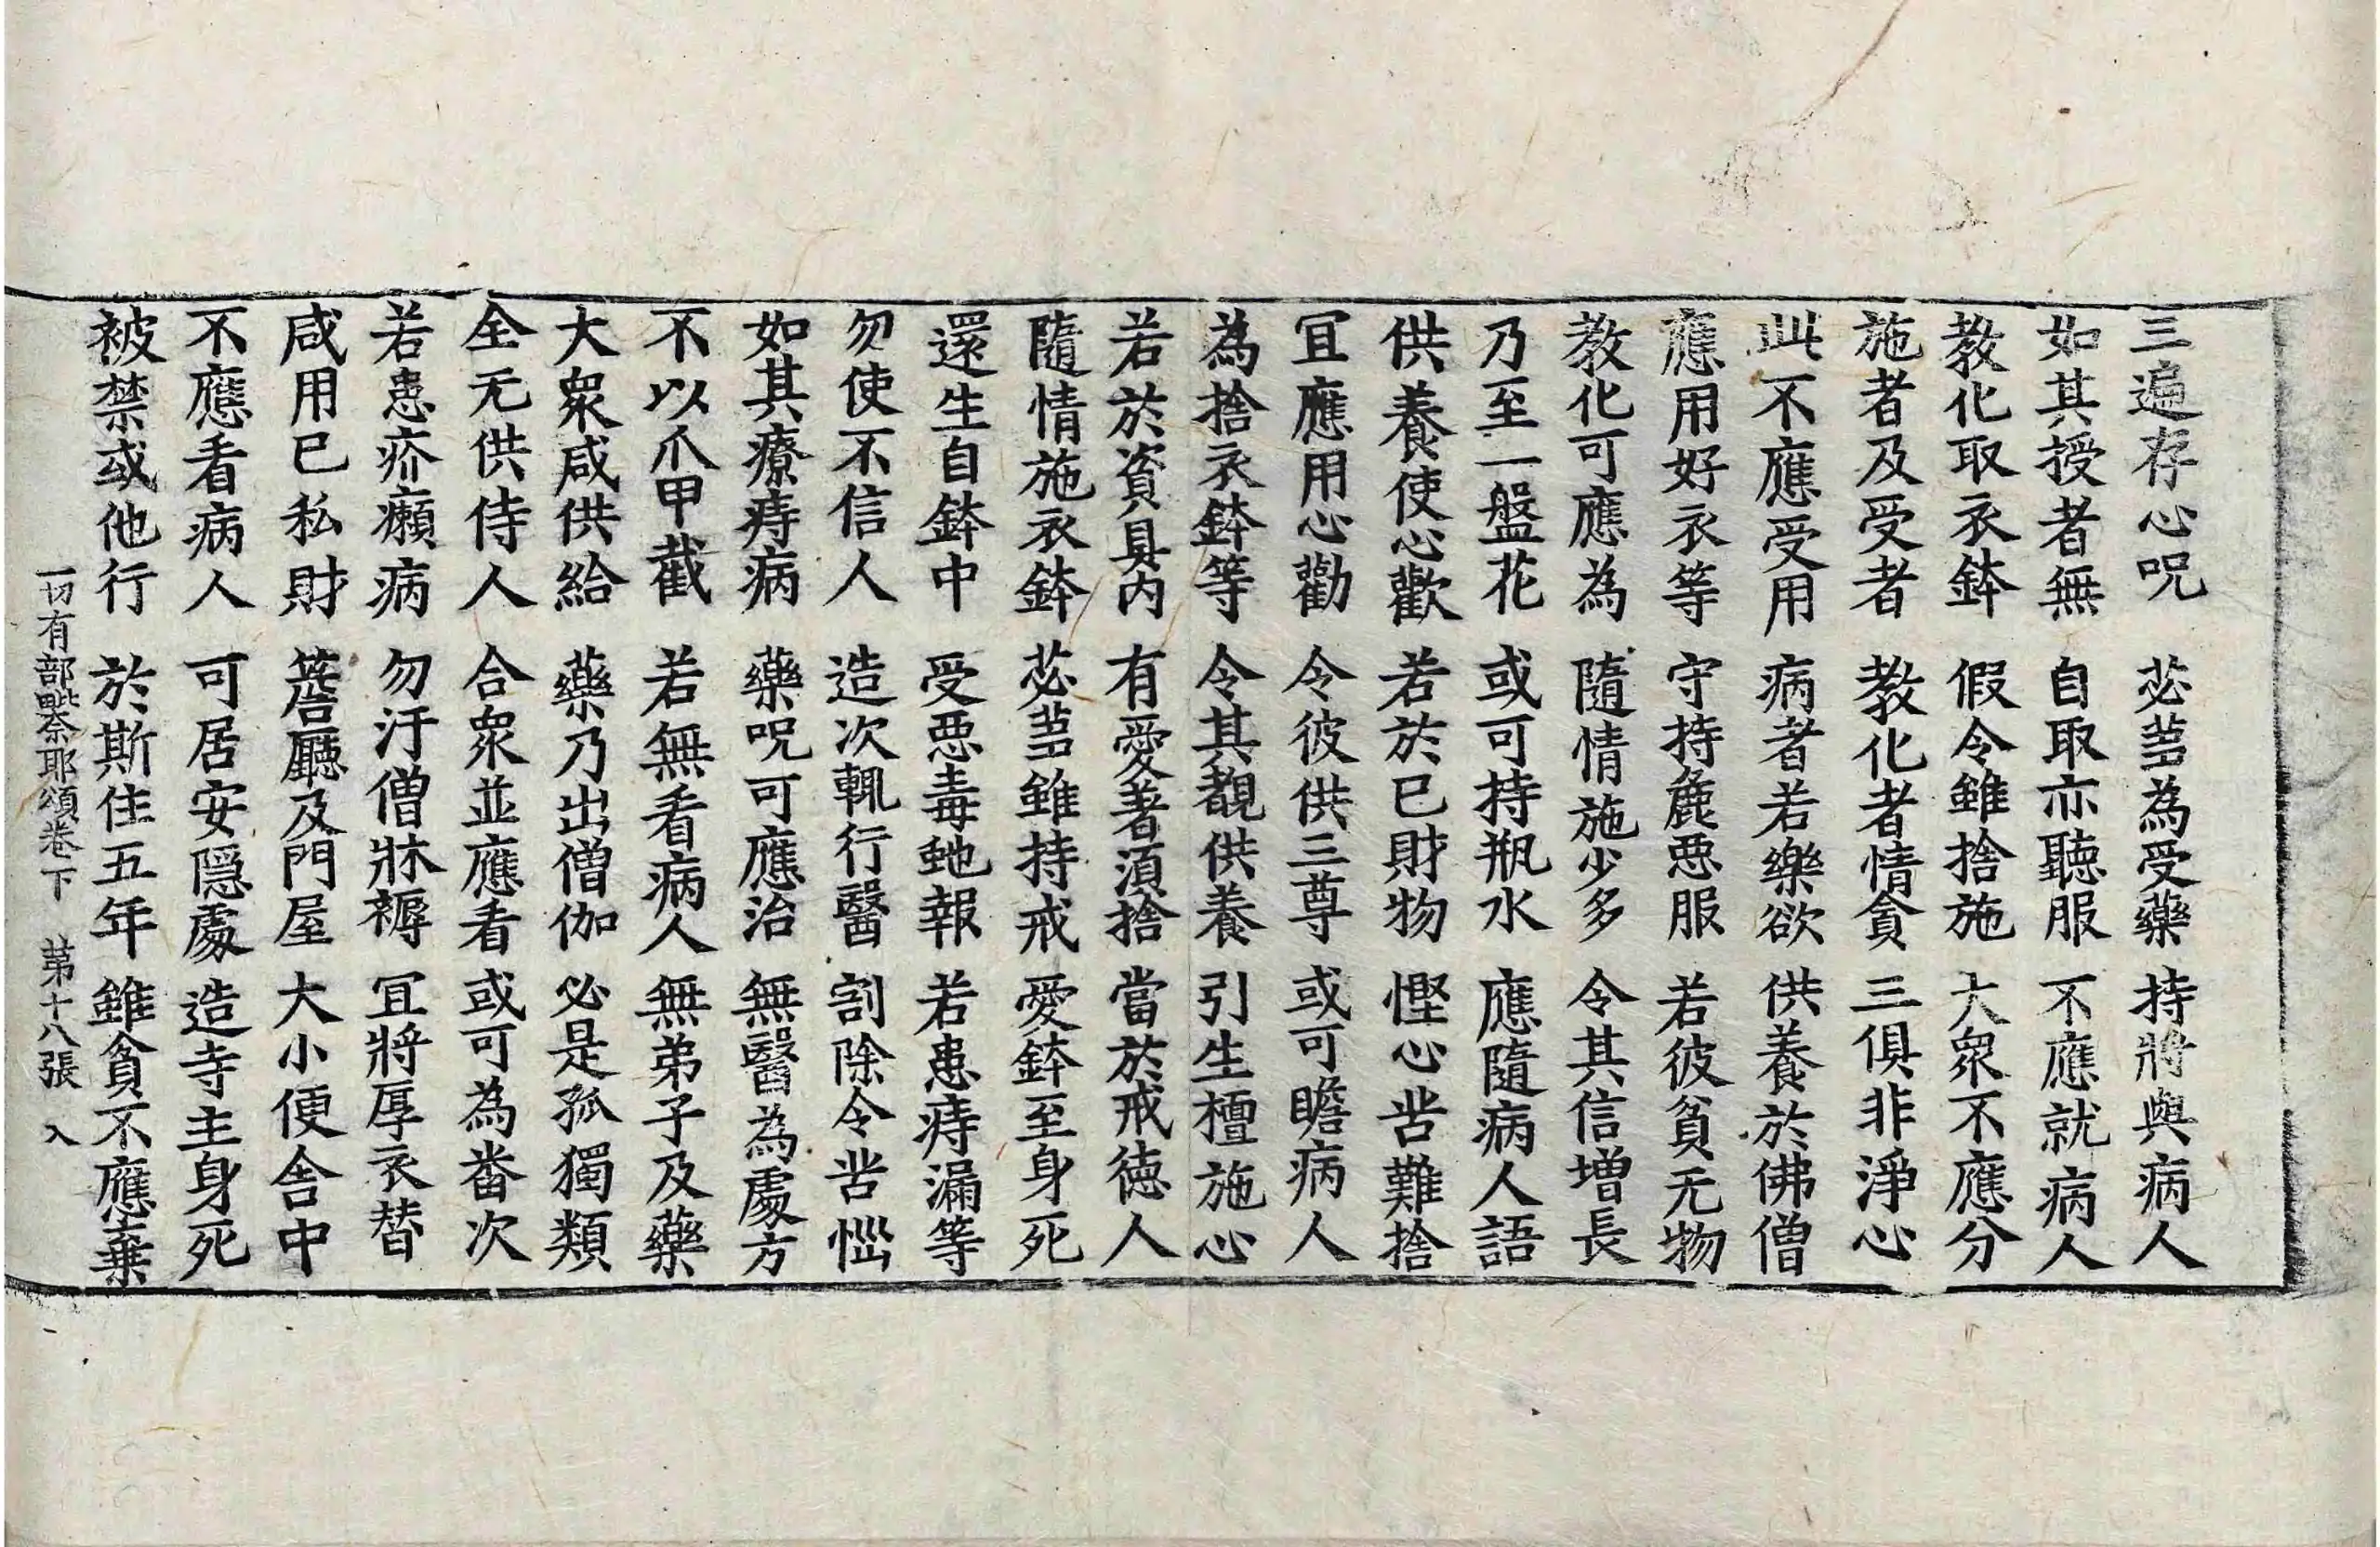 三遍存心呪　苾蒭為受藥　持將與病人
如其授者無　自取亦聽服　不應就病人
教化取衣鉢　假令雖捨施　大衆不應分
施者及受者　教化者情貪　三俱非淨心
此不應受用　病者若樂欲　供養於佛僧
應用好衣等　守持麁惡服　若彼貧无物
教化可應為　隨情施少多　令其信增長
乃至一盤花　或可持瓶水　應隨病人語
供養使心歡　若於已財物　慳心苦難捨
冝應用心勸　令彼供三尊　或可瞻病人
為捨衣鉢等　令其覩供養　引生檀施心
若於資具內　有愛著須捨　當於戒徳人
隨情施衣鉢　苾蒭雖持戒　愛鉢至身死
還生自鉢中　受惡毒虵報　若患痔漏等
勿使不信人　造次輒行醫　割除令苦惱
如其療痔病　藥呪可應治　無醫為處方
不以爪甲截　若無看病人　無弟子及藥
大衆咸供給　藥乃出僧伽　必是孤獨類
全无供侍人　合衆並應看　或可為番次
若患疥癩病　勿汙僧牀褥　冝將厚衣替
咸用已私財　簷廳及門屋　大小便舍中
不應看病人　可居安隱處　造寺主身死
被禁或他行　於斯住五年　雖貧不應棄
一切有部毗奈耶頌卷下　苐十八張　入